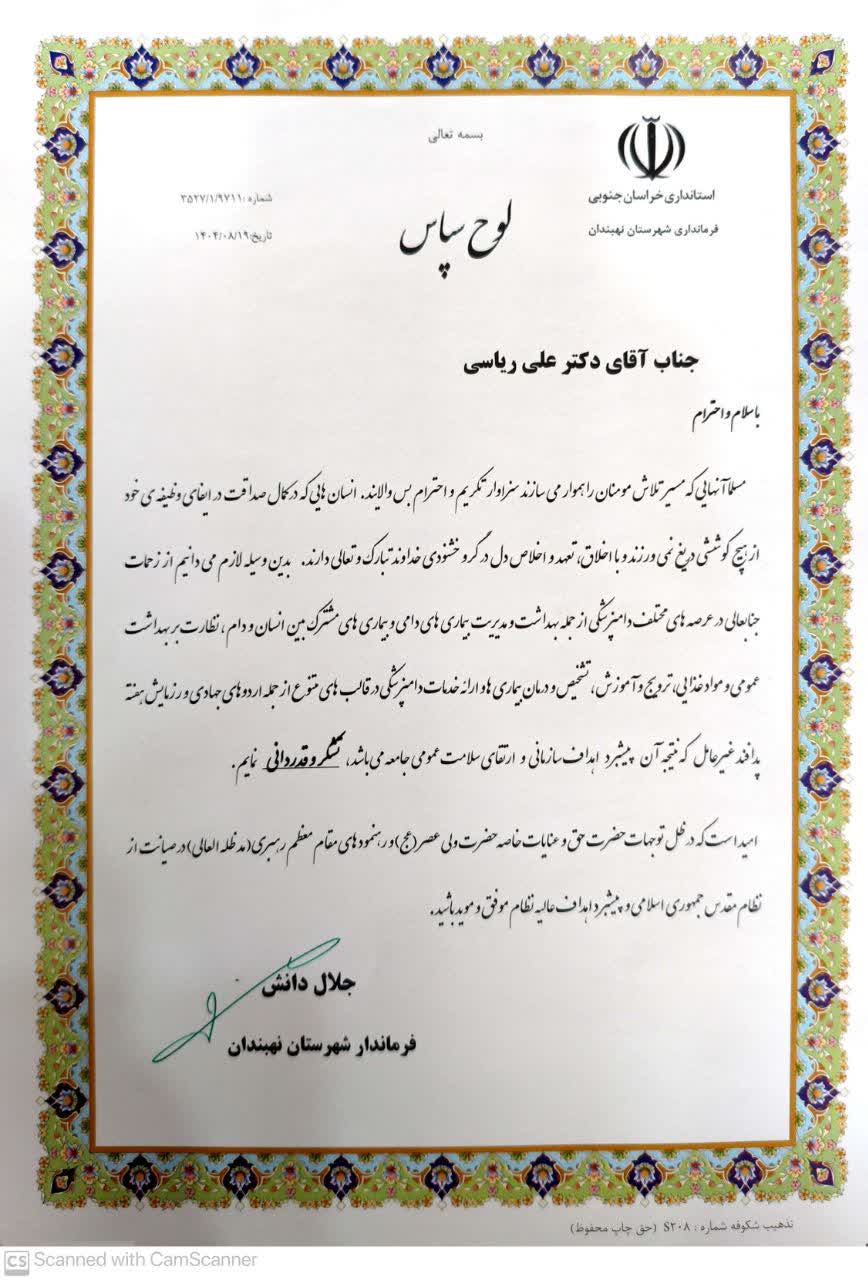 بسمه تعالی
استانداری خراسان جنوبی
فرمانداری شهرستان نهبندان
شماره :۳۵۲۷/۱/۹۷۱۱
تاریخ:۱۴۰۴/۰۸/۱۹
لوح سپاس
جناب آقای دکتر علی ریاسی
باسلام و احترام
مسلما آنهایی که مسیر تلاش مومنان را هموار می سازند سزاوار تکریم و احترام بس والایند. انسان هایی که در کمال صداقت در ایفای وظیفه ی خود
از هیچ کوششی دریغ نمی ورزند و با اخلاق، تعهد و اخلاص دل در گرو خشنودی خداوند تبارک و تعالی دارند. بدین وسیله لازم می دانیم از زحمات
جنابعالی در عرصه های مختلف دامپزشکی از جمله بهداشت و مدیریت بیماری های دامی و بیماری های مشترک بین انسان و دام ، نظارت بر بهداشت
عمومی و مواد غذایی، ترویج و آموزش، تشخیص و درمان بیماری ها و ارائه خدمات دامپزشکی در قالب های متنوع از جمله اردوهای جهادی و رزمایش هفته
پدافند غیرعامل که نتیجه آن پیشبرد اهداف سازمانی و ارتقای سلامت عمومی جامعه می باشد، تشکر و قدردانی نمایم.
امید است که در ظل توجهات حضرت حق و عنایات خاصه حضرت ولی عصر(عج) و رهنمودهای مقام معظم رهبری(مد ظله العالی) در صیانت از
نظام مقدس جمهوری اسلامی و پیشبرد اهداف عالیه نظام موفق و موید باشید.
جلال دانش
فرماندار شهرستان نهبندان
تذهیب شکوفه شماره : S۲۰۸ (حق چاپ محفوظ)
CS Scanned with CamScanner